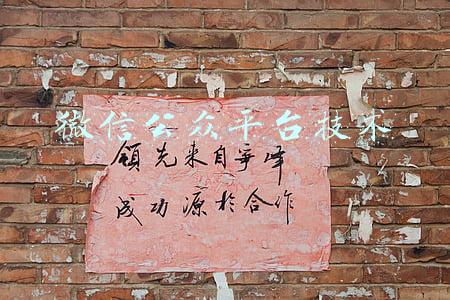 微信公众平台技术
领先来自争峰
成功源于合作